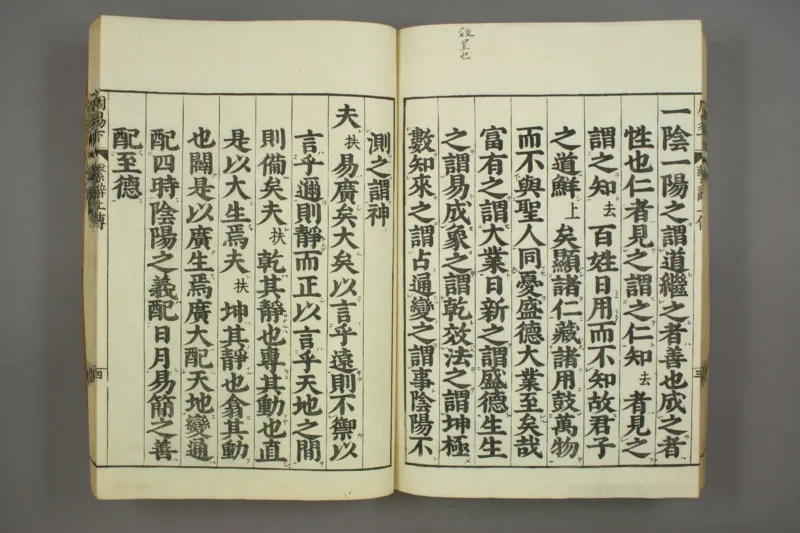 效呈也
一陰一陽之謂道繼之者善也成之者
性也仁者見之謂之仁知去者見之
謂之知去百姓日用而不知故君子
之道鮮上矣顯諸仁藏諸用鼓萬物
而不與聖人同憂盛德大業至矣哉
富有之謂大業日新之謂盛德生生
之謂易成象之謂乾效法之謂坤極
數知來之謂占通變之謂事陰陽不
測之謂神
夫扶易廣矣大矣以言乎遠則不禦以
言乎邇則靜而正以言乎天地之間
則備矣夫扶乾其靜也專其動也直
是以大生焉夫扶坤其靜也翕其動
也闢是以廣生焉廣大配天地變通
配四時陰陽之義配日月易簡之善
配至德
周易下
繫辭上傳
四